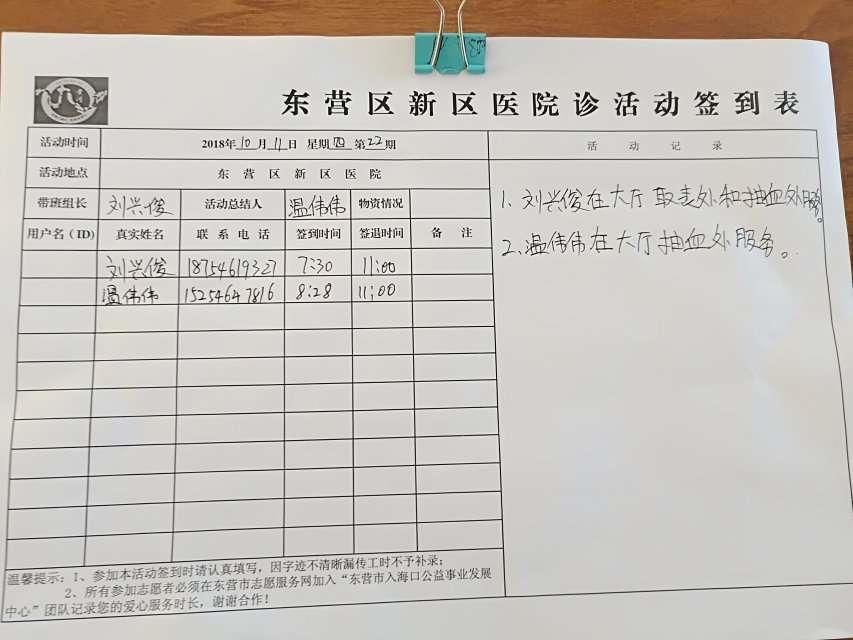 东营区新区医院诊活动签到表
活动时间 2018年10月11日 星期四 第22期 活动记录
活动地点 东营区新区医院
带班组长 刘兴俊 活动总结人 温伟伟 物资情况
用户名(ID) 真实姓名 联系电话 签到时间 签退时间 备注
刘兴俊 18754619327 7:30 11:00
温伟伟 15254647816 8:28 11:00
1、刘兴俊在大厅取走处和抽血处服务。
2、温伟伟在大厅抽血处服务。
温馨提示:1、参加本活动签到时请认真填写,因字迹不清晰漏传工时不予补录;
2、所有参加志愿者必须在东营市志愿服务网加入“东营市入海口公益事业发展
中心”团队记录您的爱心服务时长,谢谢合作!